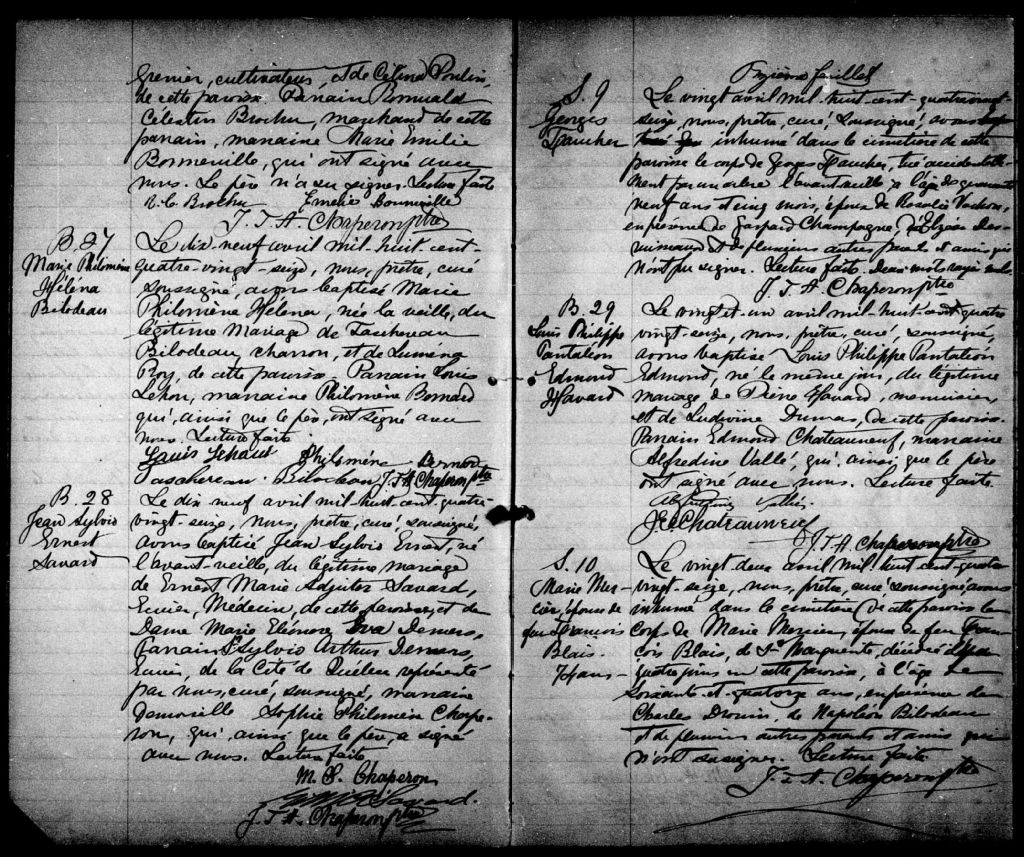 Grenier, cultivateur, & de Célina Poulin,
de cette paroisse. Parrain Romuald
Célestin Brochu, marchand de cette
paroisse, marraine Marie Emilie
Bonneville, qui ont signé avec
nous. Le père n'a su signer. Lecture faite
R. C. Brochu Emelie Bonneville
J. T. A. Chaperon ptre
B. 27
Marie Philomène
Héléna
Bilodeau
Le dix-neuf avril mil-huit cent-
quatre-vingt-seize, nous, prêtre, curé
soussigné, avons baptisé Marie
Philomène Hélena, née la veille, du
légitime mariage de Taschereau
Bilodeau, charron, et de Luména
Roy, de cette paroisse. Parrain Louis
marraine Philomène Bernard
qui, ainsi que le père, ont signé avec
nous. Lecture faite
Louis Philomène Bernard
Taschereau Bilodeau J. T. A. Chaperon ptre
B. 28
Jean Sylvio
Ernest
Savard
Le dix neuf avril mil-huit-cent-quatre-
vingt-seize, nous, prêtre, curé, soussigné,
avons baptisé Jean Sylvio Ernest, né
l'avant-veille, du légitime mariage
de Ernest Marie Adjutor Savard,
Ecuier, Médecin, de cette paroisse, et de
Dame Marie Eléonore Eva Demers,
Parrain Sylvio Arthur Demers,
Ecuier, de la Cité de Québec représenté
par nous, curé, soussigné, marraine
Demoiselle Sophie Philomène Chape-
ron, qui ainsi que le père, a signé
avec nous. Lecture faite
M. S. Chaperon
Savard.
J. T. A. Chaperon ptre
Onzième feuillet
S. 9
Georges
Faucher
Le vingt avril mil-huit-cent-quatrevingt-
seize, nous, prêtre, curé, soussigné, avons
inhumé dans le cimetière de cette
paroisse le corps de Georges Faucher, tué accidentelle-
ment par un arbre l'avant-veille à l'âge de quarante
neuf ans et cinq mois, époux de Rosalie Vachon,
en présence de Gaspard Champagne, d'Elzéar
et de plusieurs autres parents et amis qui
n'ont pu signer. Lecture faite. Deux mots rayés nuls.
J. T. A. Chaperon ptre
B. 29
Louis Philippe
Pantaléon
Edmond
Havard
Le vingt et un avril mil-huit-cent quatre
vingt-seize, nous, prêtre, curé, soussigné,
avons baptisé Louis Philippe Pantaléon
Edmond, né le même jour, du légitime
mariage de Pierre Havard, menuisier
et de Ludivine Dumas, de cette paroisse.
Parrain Edmond Chateauneuf, marraine
Alfredine Vallé, qui ainsi que le père
ont signé avec nous. Lecture faite
Alfredine Vallée
J. E. Chateauneuf
J. T. A. Chaperon ptre
S. 10
Marie Mer-
cier, épouse de
feu François
Blais.
74 ans
Le vingt deux avril mil huit cent-quatre
vingt-seize, nous, prêtre, curé soussigné avons
inhumé dans le cimetière de cette paroisse le
corps de Marie Mercier, épouse de feu Fran-
çois Blais, de Ste Marguerite, décédée il y a
quatre jours en cette paroisse, à l'âge de
soixante-et-quatorze ans, en présence de
Charles Drouin, de Napoléon Bilodeau
et de plusieurs autres parents et amis qui
n'ont su signer. Lecture faite
J. T. A. Chaperon ptre